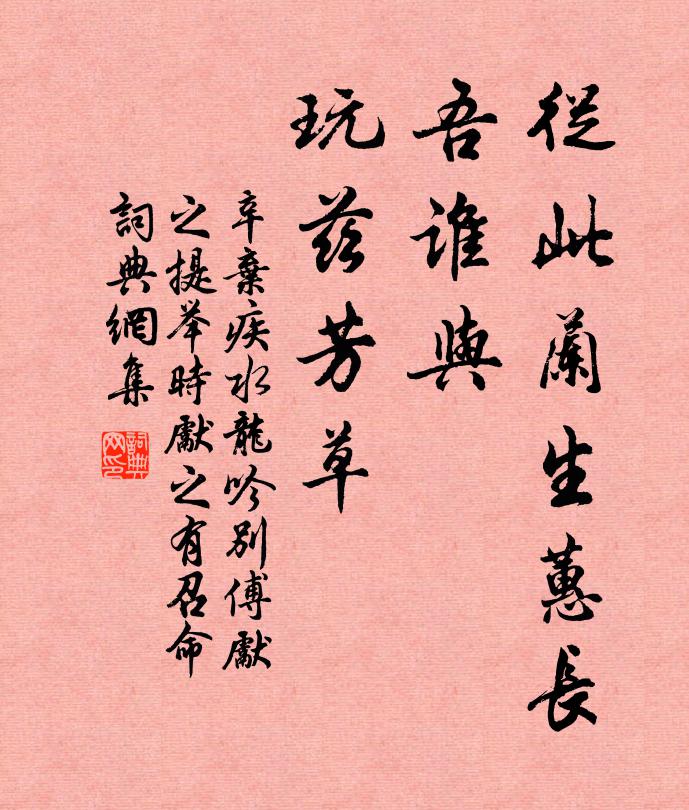 從此蘭生蕙長
吾誰與
玩茲芳草
辛棄疾水龍吟別傅獻
之提举時獻之有召命
詞典網集
詞典网印